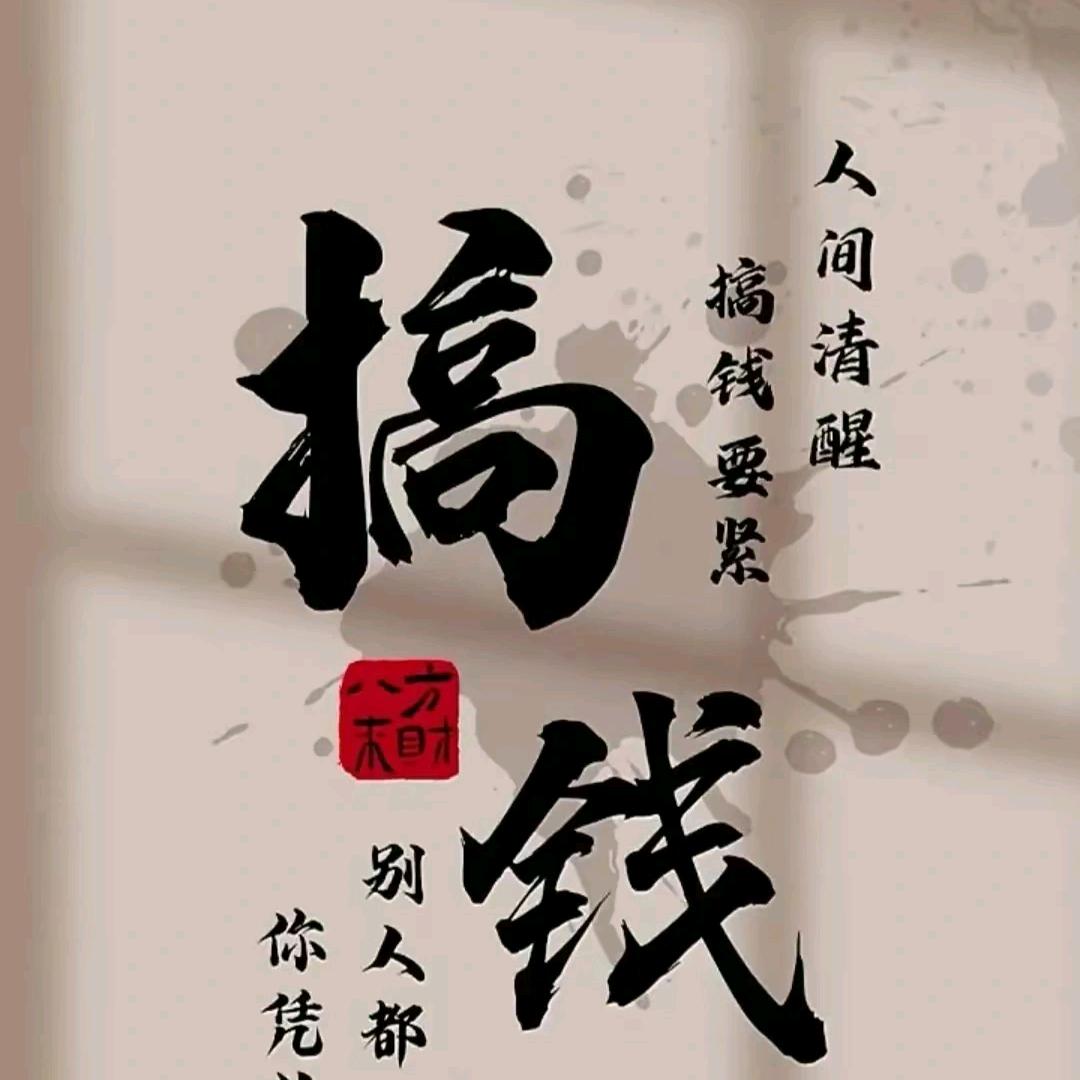 人间清醒
搞钱要紧
搞
钱
八方
来财
别人都
你凭